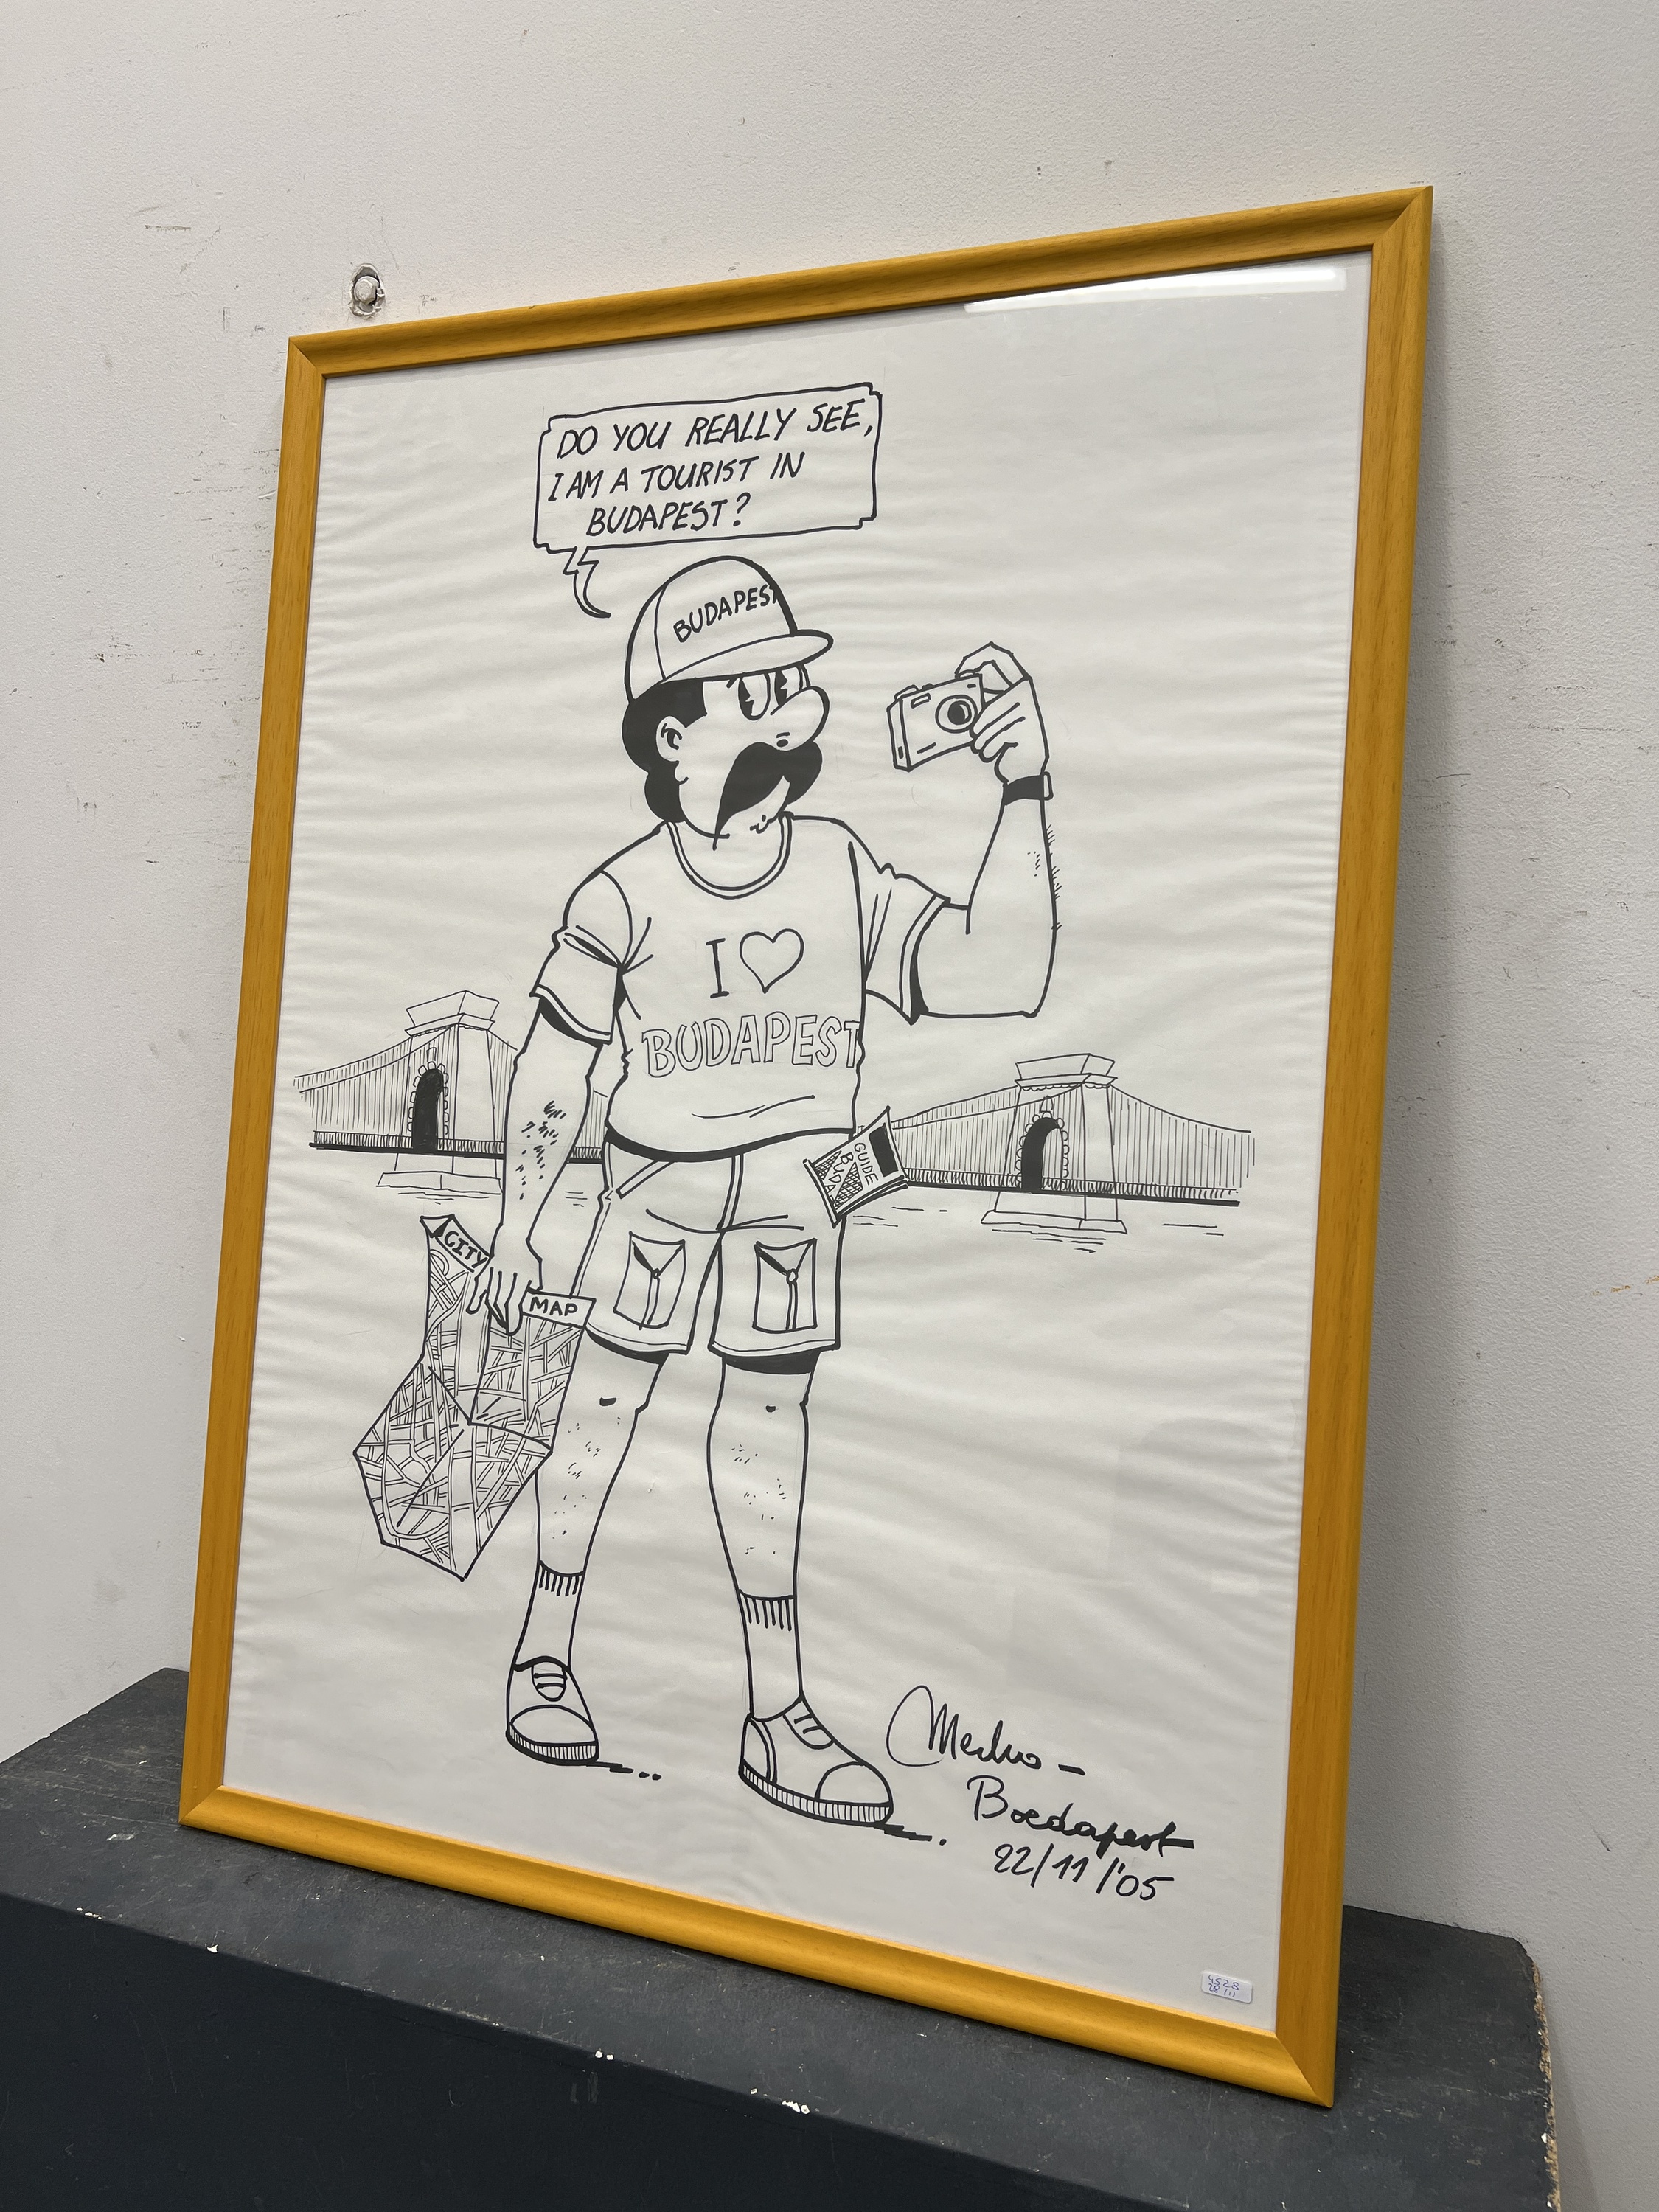 DO YOU REALLY SEE,
I AM A TOURIST IN
BUDAPEST?
BUDAPEST
I ♡
BUDAPEST
GUIDE
BUDA
CITY
MAP
Boedapest
22/11/'05
4528
28/11